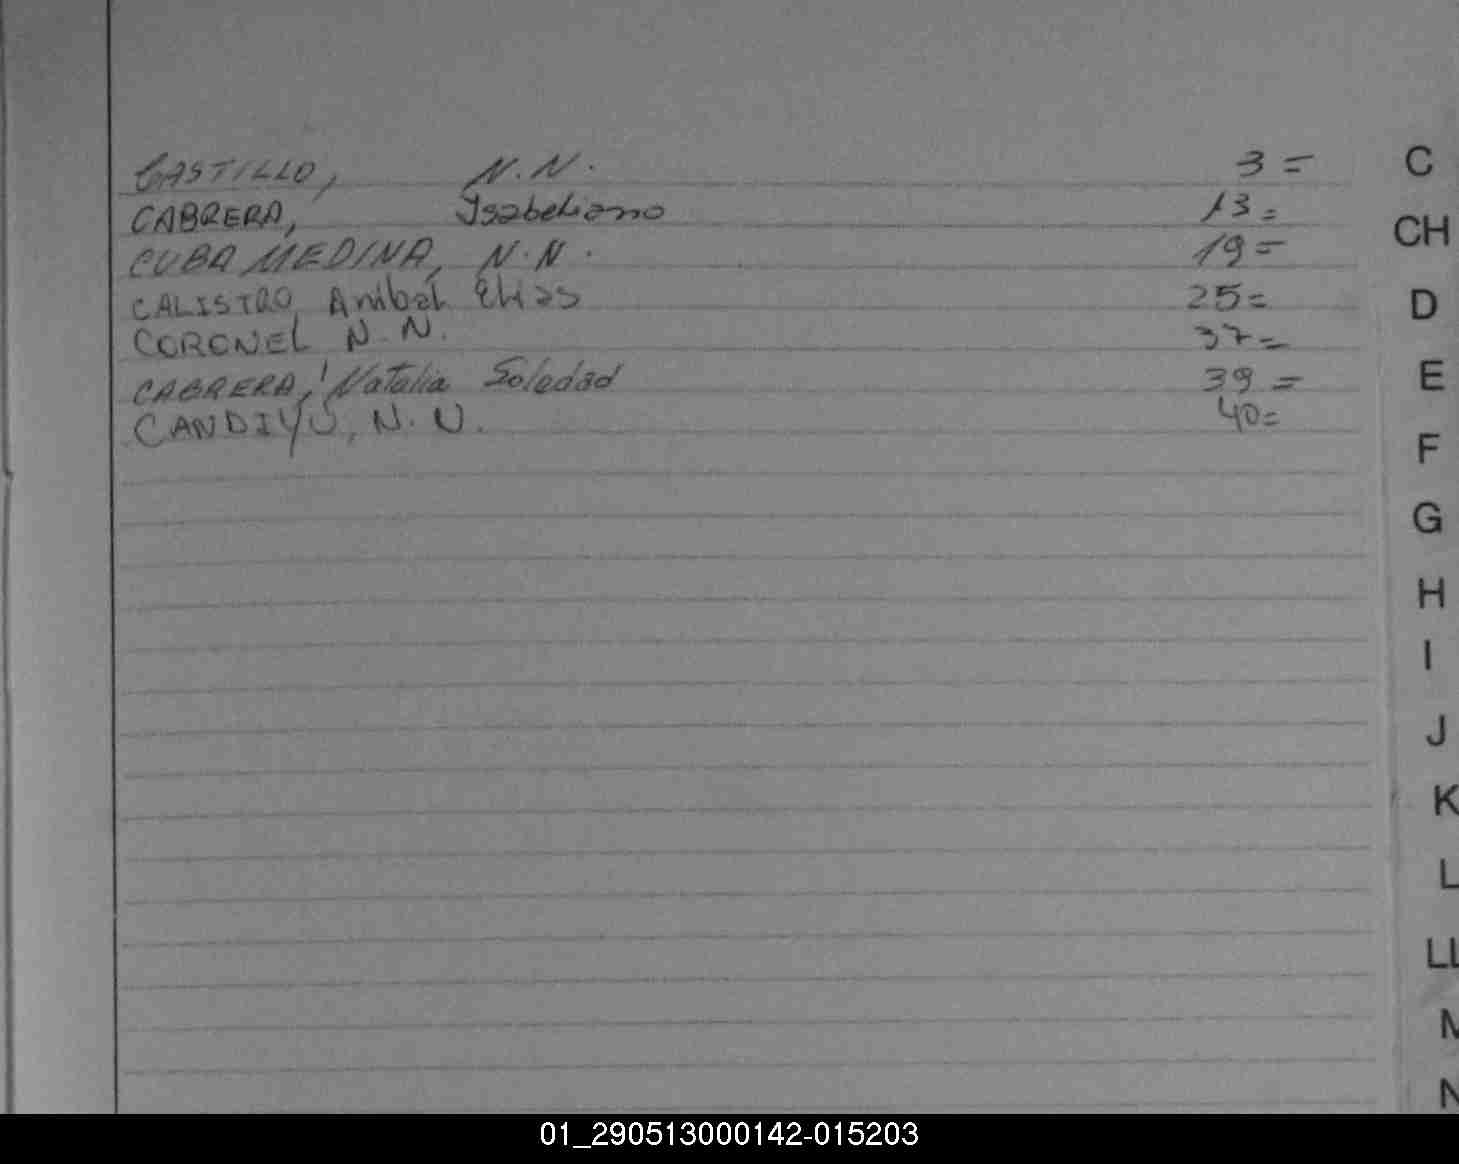 CASTILLO, N.N. 3=
CABRERA, Ysabeliano 13=
CUBA MEDINA, N.N. 19=
CALISTRO, Anibal Elias 25=
CORONEL N.N. 37=
CABRERA, Natalia Soledad 39=
CANDIYÚ, N.N. 40=
C
CH
D
E
F
G
H
I
J
K
L
LL
M
N
01_290513000142-015203